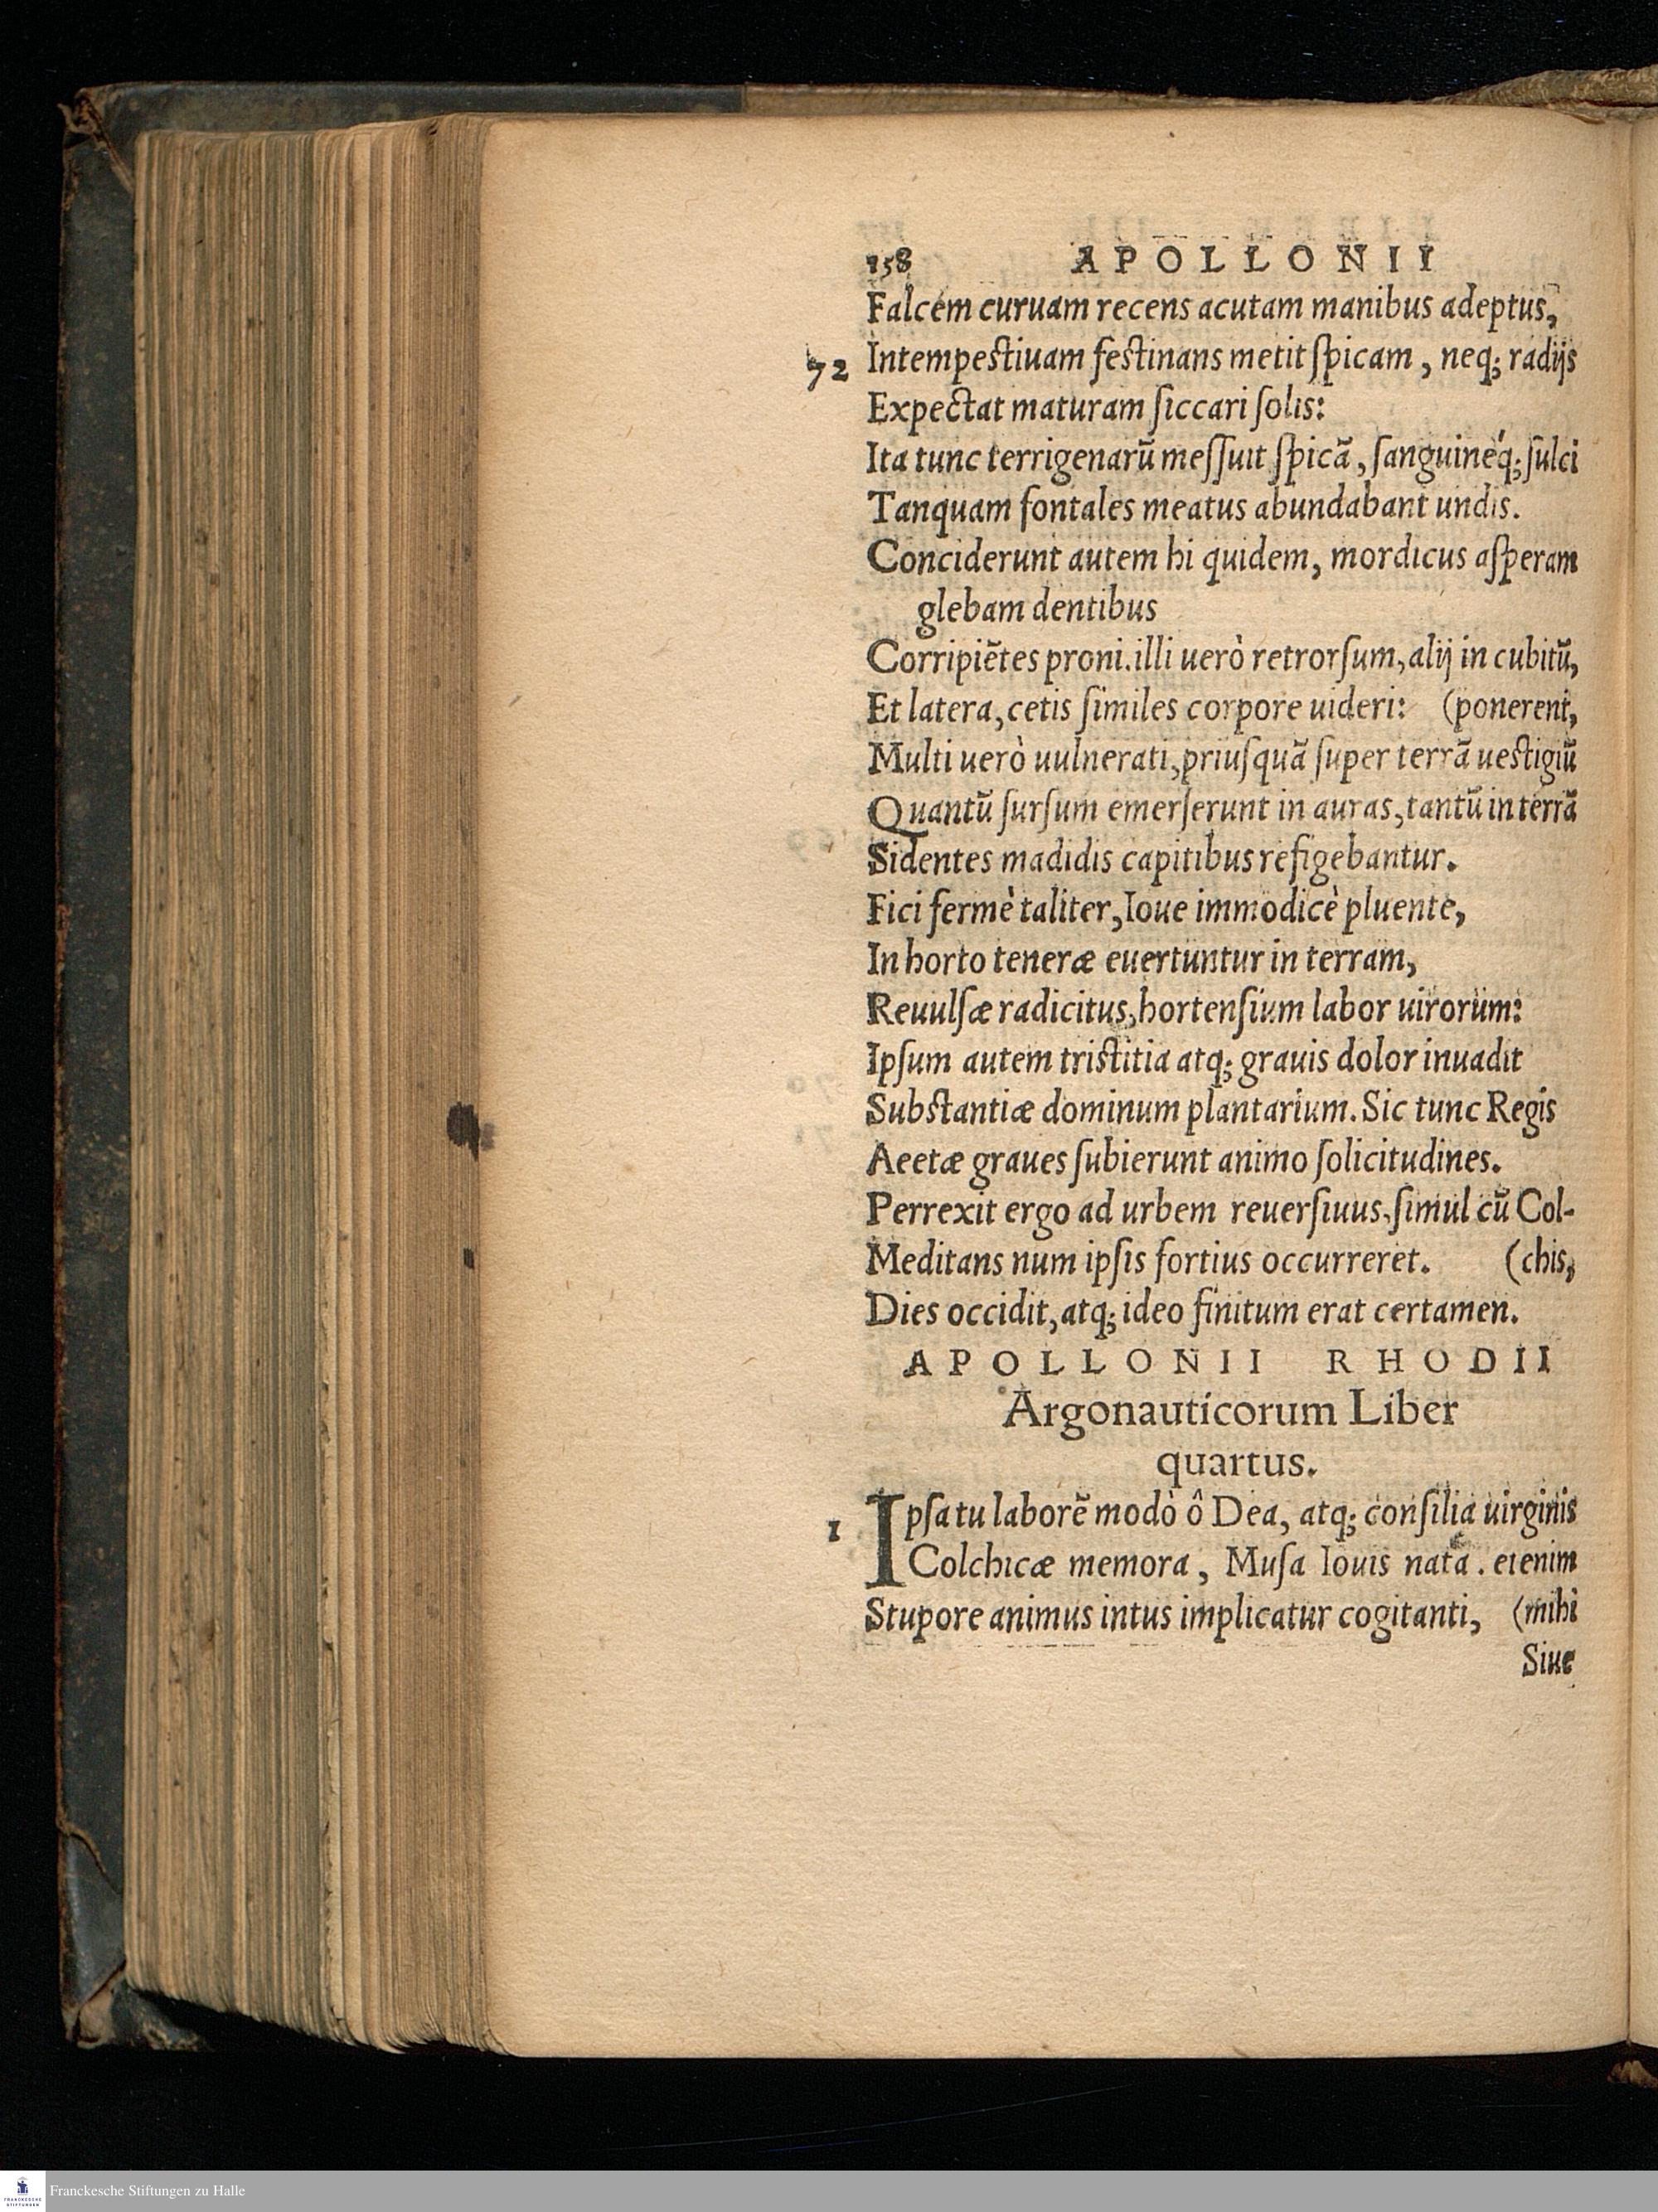 158 APOLLONII
Falcem curuam recens acutam manibus adeptus,
72 Intempestiuam festinans metit ſpicam, neq; radijs
Expectat maturam ſiccari ſolis:
Ita tunc terrigenarũ meſſuit ſpicã, ſanguineq́; ſulci
Tanquam fontales meatus abundabant undis.
Conciderunt autem hi quidem, mordicus aſperam
glebam dentibus
Corripiẽtes proni. illi uerò retrorſum, alij in cubitũ,
Et latera, cetis ſimiles corpore uideri: (ponerent,
Multi uerò uulnerati, priuſquã ſuper terrã uestigiũ
Quantũ ſurſum emerſerunt in auras, tantũ in terrã
Sidentes madidis capitibus refigebantur.
Fici fermè taliter, Ioue immodicè pluente,
In horto teneræ euertuntur in terram,
Reuulſæ radicitus, hortenſium labor uirorum:
Ipſum autem tristitia atq; grauis dolor inuadit
Substantiæ dominum plantarium. Sic tunc Regis
Aeetæ graues ſubierunt animo ſolicitudines.
Perrexit ergo ad urbem reuerſiuus, ſimul cũ Col-
Meditans num ipſis fortius occurreret. (chis,
Dies occidit, atq; ideo finitum erat certamen.
APOLLONII RHODII
Argonauticorum Liber
quartus.
1 Ipſa tu laborẽ modò ô Dea, atq; conſilia uirginis
Colchicæ memora, Muſa Iouis nata. etenim
Stupore animus intus implicatur cogitanti, (mihi
Siue
FRANCKESCHE STIFTUNGEN
Franckesche Stiftungen zu Halle